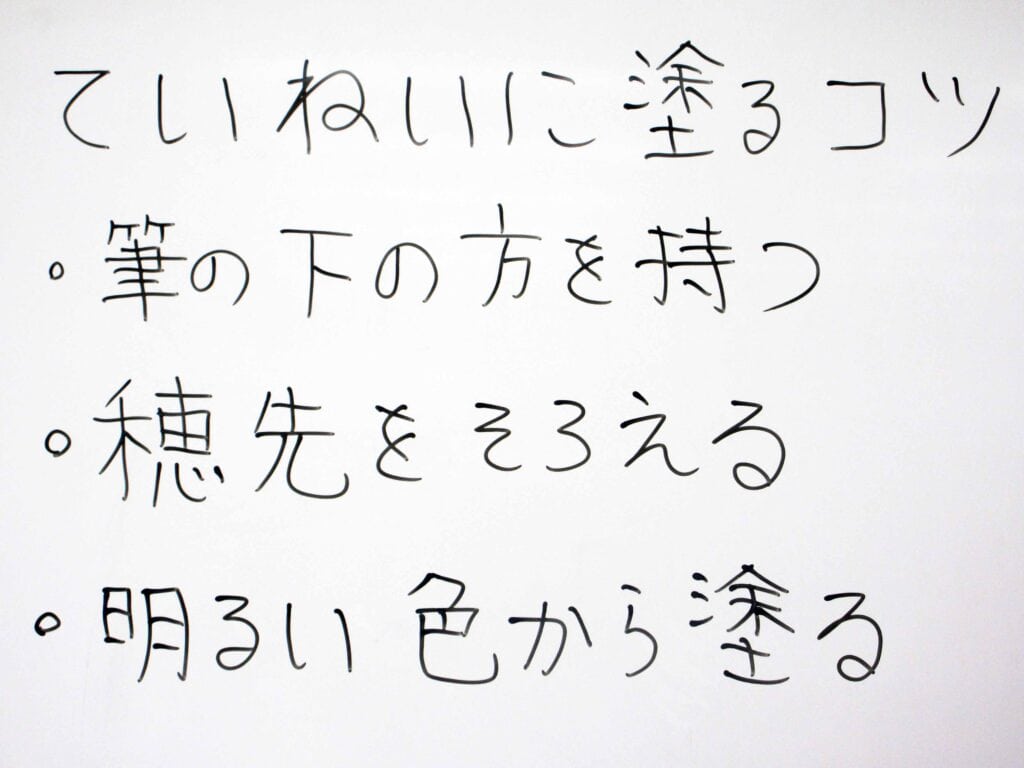 ていねいに塗るコツ
・筆の下の方を持つ
・穂先をそろえる
・明るい色から塗る